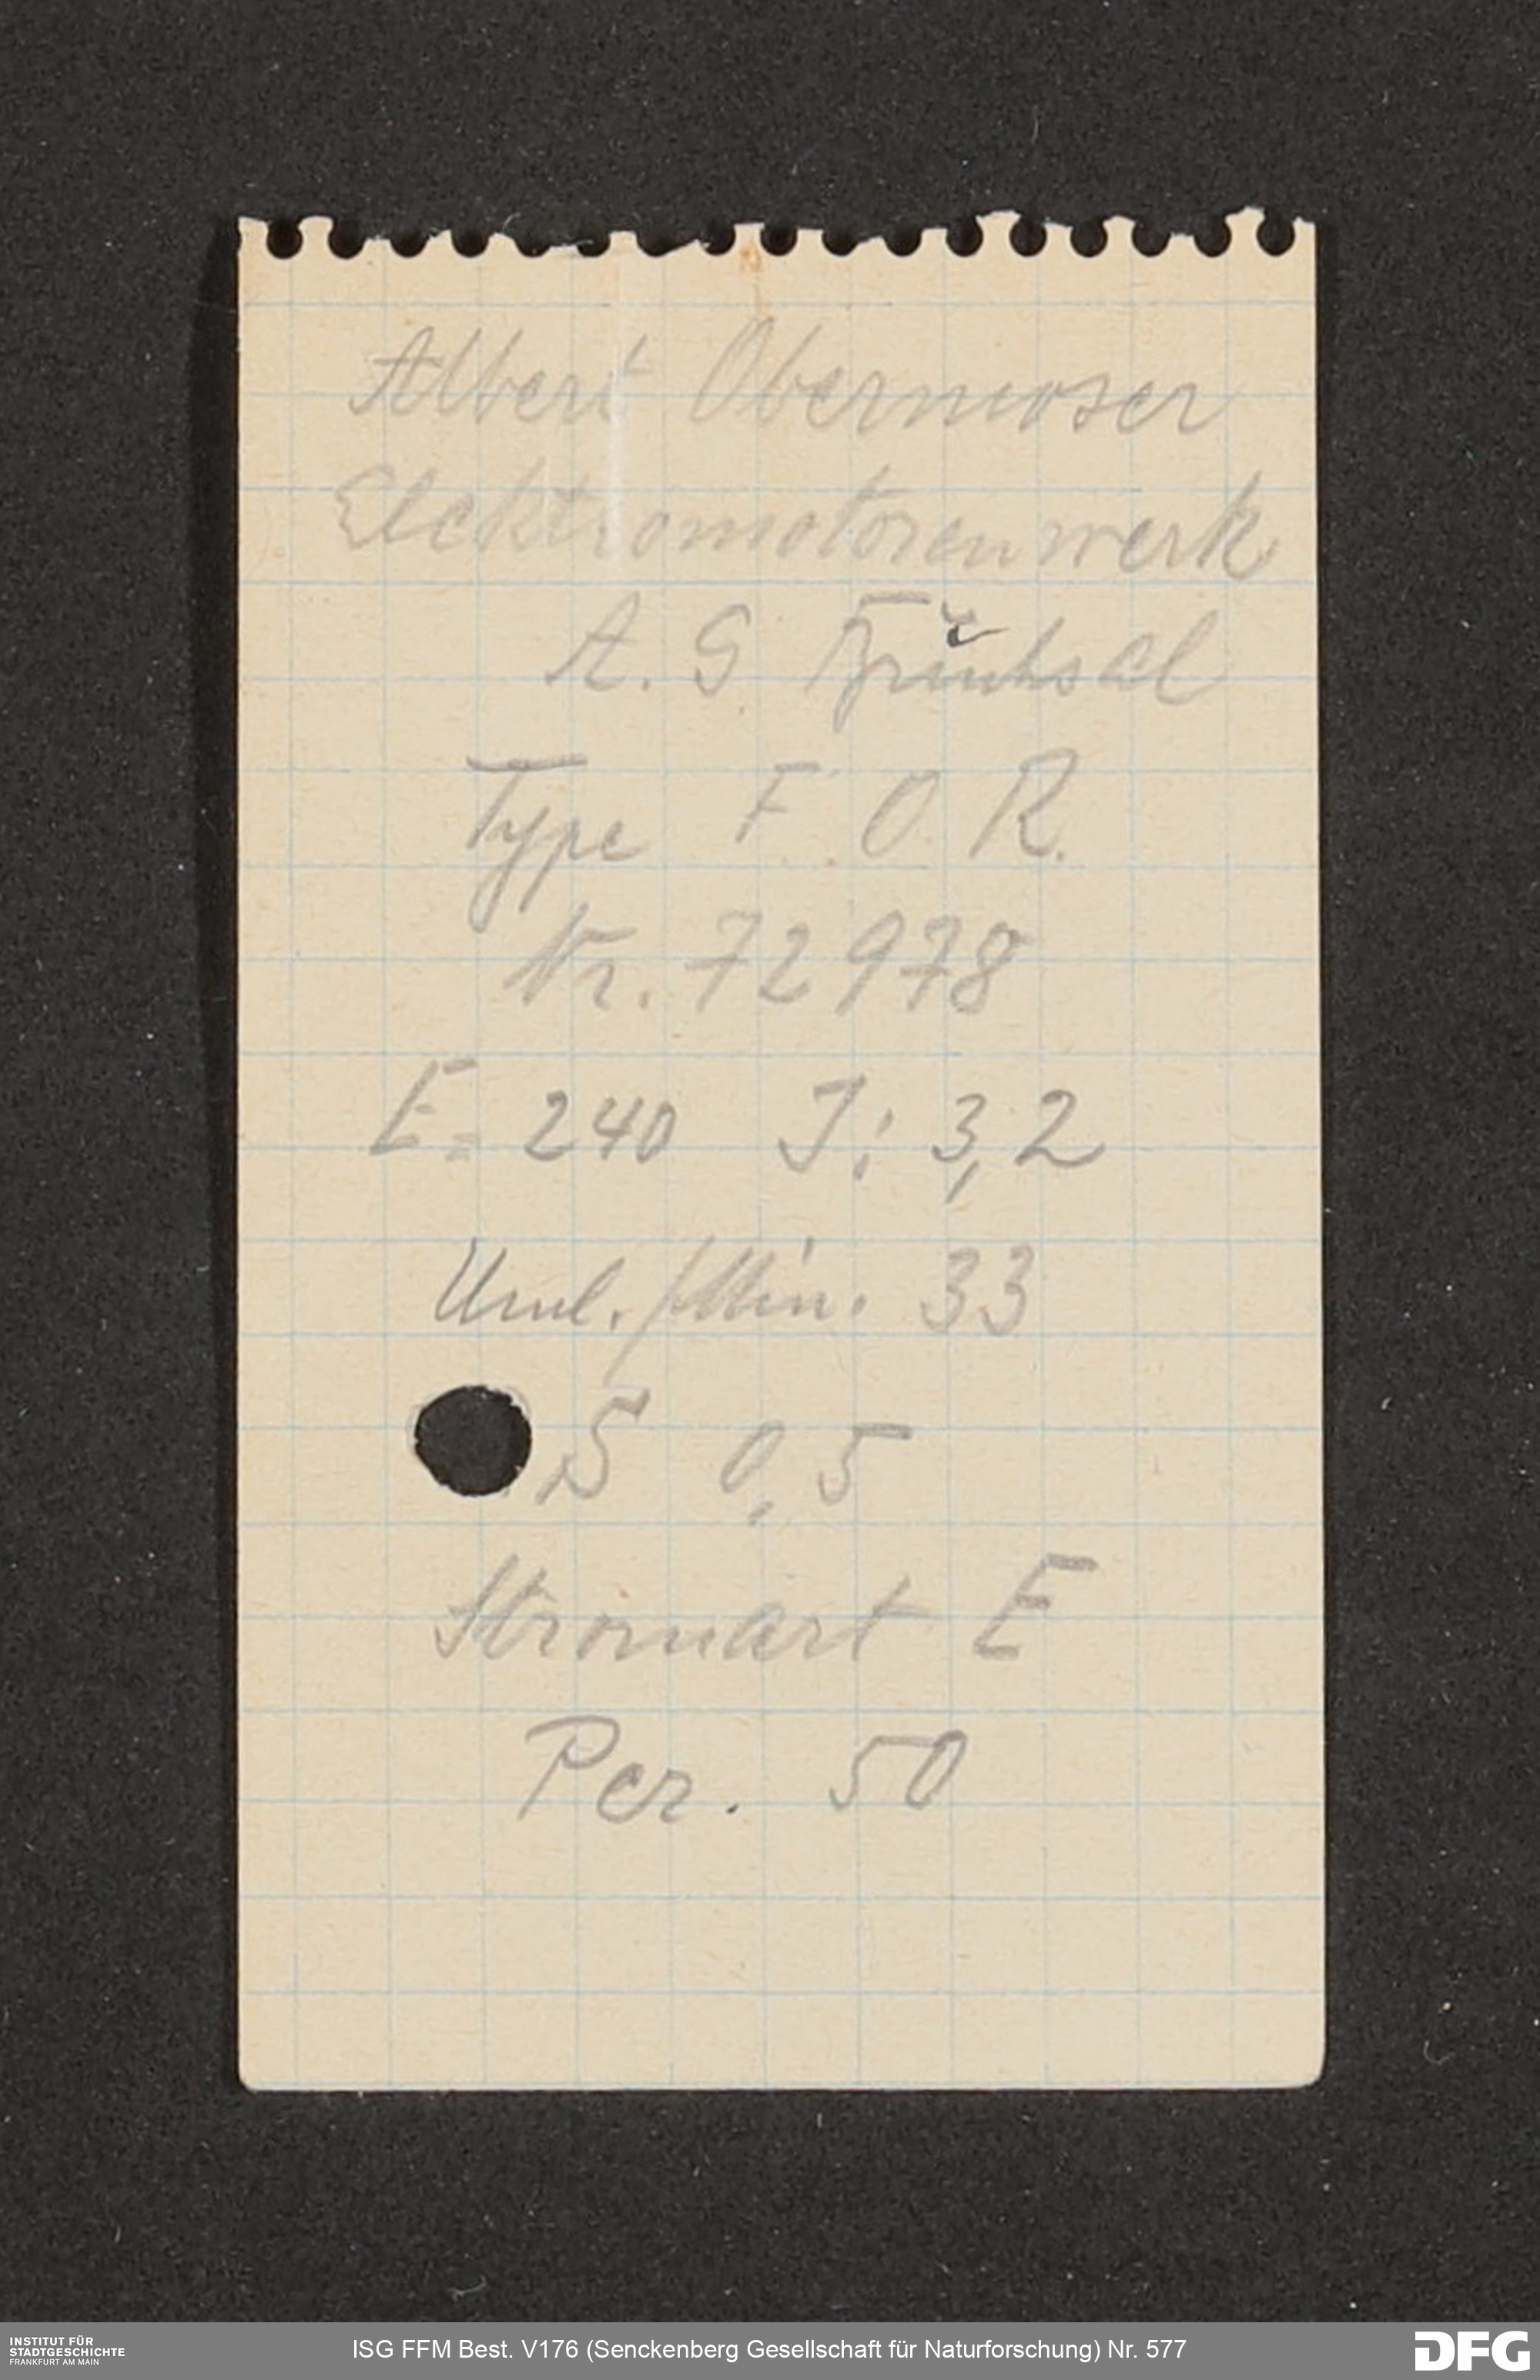 Albert Obermoser
Elektromotorenwerk
A. G Bruchsal
Type F. O. R.
Nr. 72978
E= 240 J: 3,2
Uml./Min. 33
PS 0,5
Stromart E
Per. 50
INSTITUT FÜR
STADTGESCHICHTE
FRANKFURT AM MAIN
ISG FFM Best. V176 (Senckenberg Gesellschaft für Naturforschung) Nr. 577
DFG